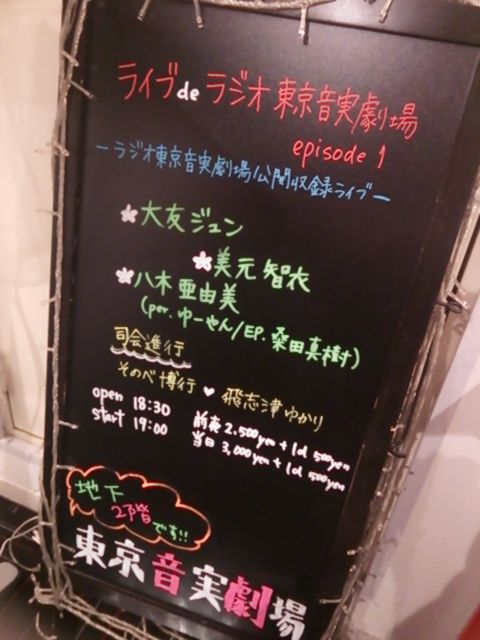 ライブdeラジオ東京音実劇場
episode 1
ーラジオ東京音実劇場公開収録ライブー
大友ジュン
美元智衣
八木亜由美
(per. ゆーせん/EP. 桑田真樹)
司会進行
そのべ博行♥飛志津ゆかり
open 18:30
start 19:00
前売 2.500yen+1d 500yen
当日 3,000yen+1d 500yen
地下
2階
です!!
東京音実劇場